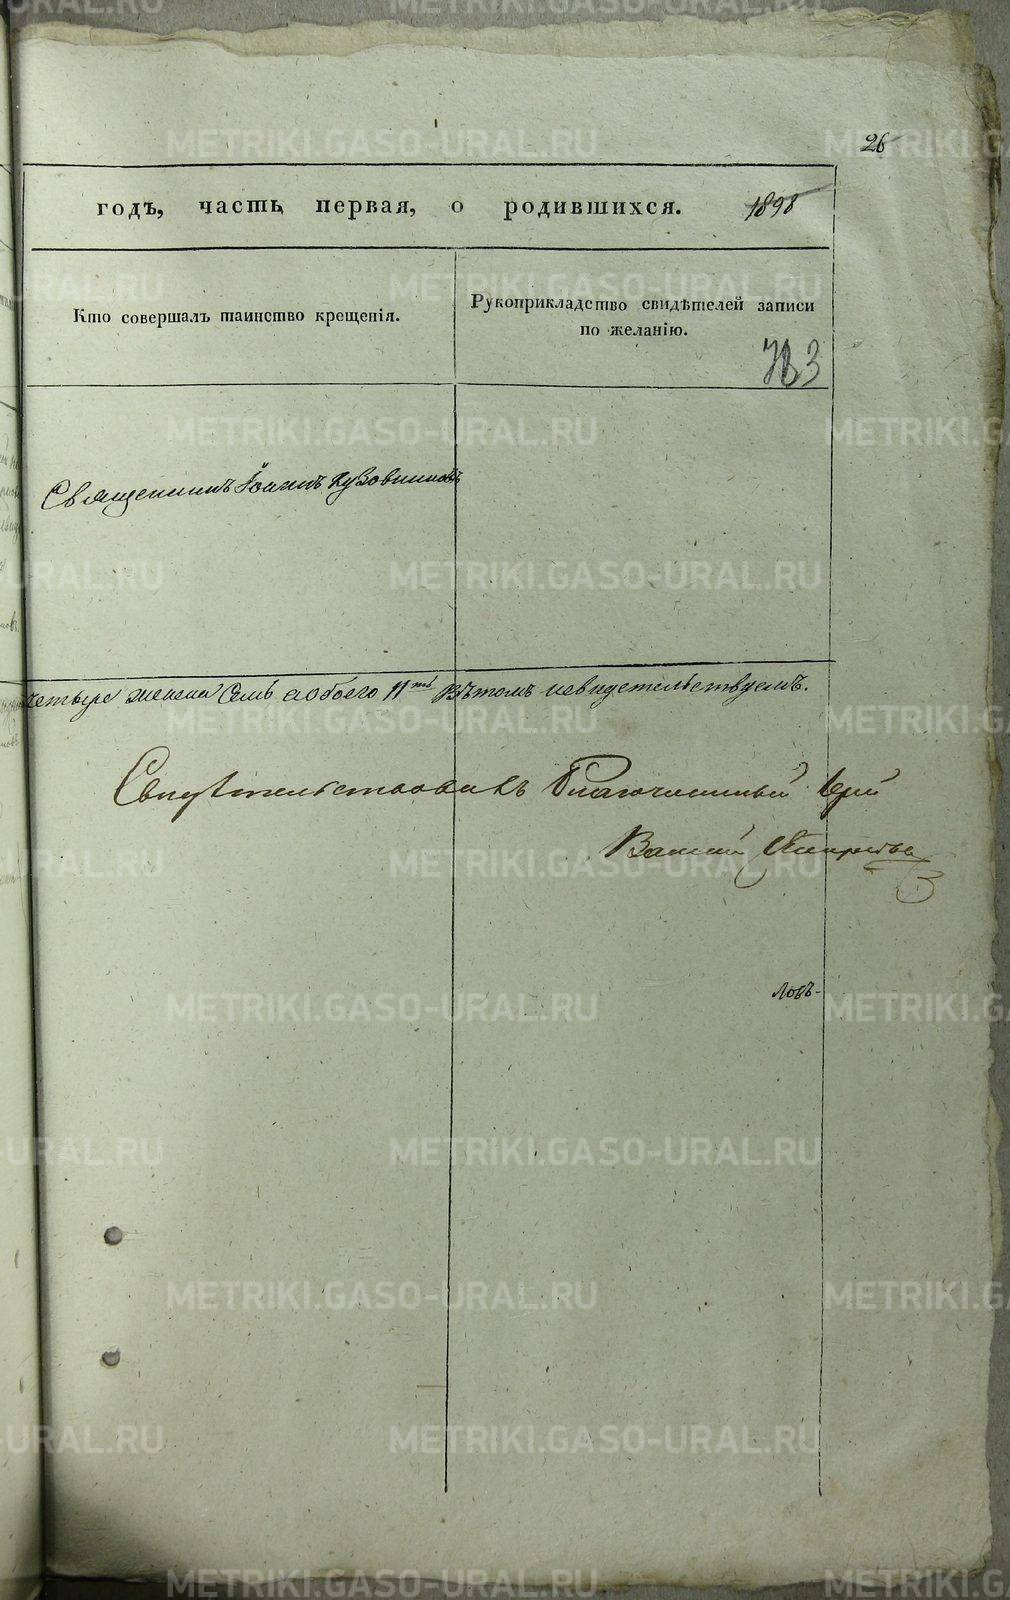 26
годъ, часть первая, о родившихся. 1898
Кто совершалъ таинство крещенія.
Рукоприкладство свидѣтелей записи
по желанію.
Священникъ Іоаннъ Кузовниковъ
четыре женска семь а обоего 11ть Вътомъ исвидетельствуемъ.
Свидѣтельствовалъ Благочинный Іерей
Василій
ловъ-
METRIKI.GASO-URAL.RU